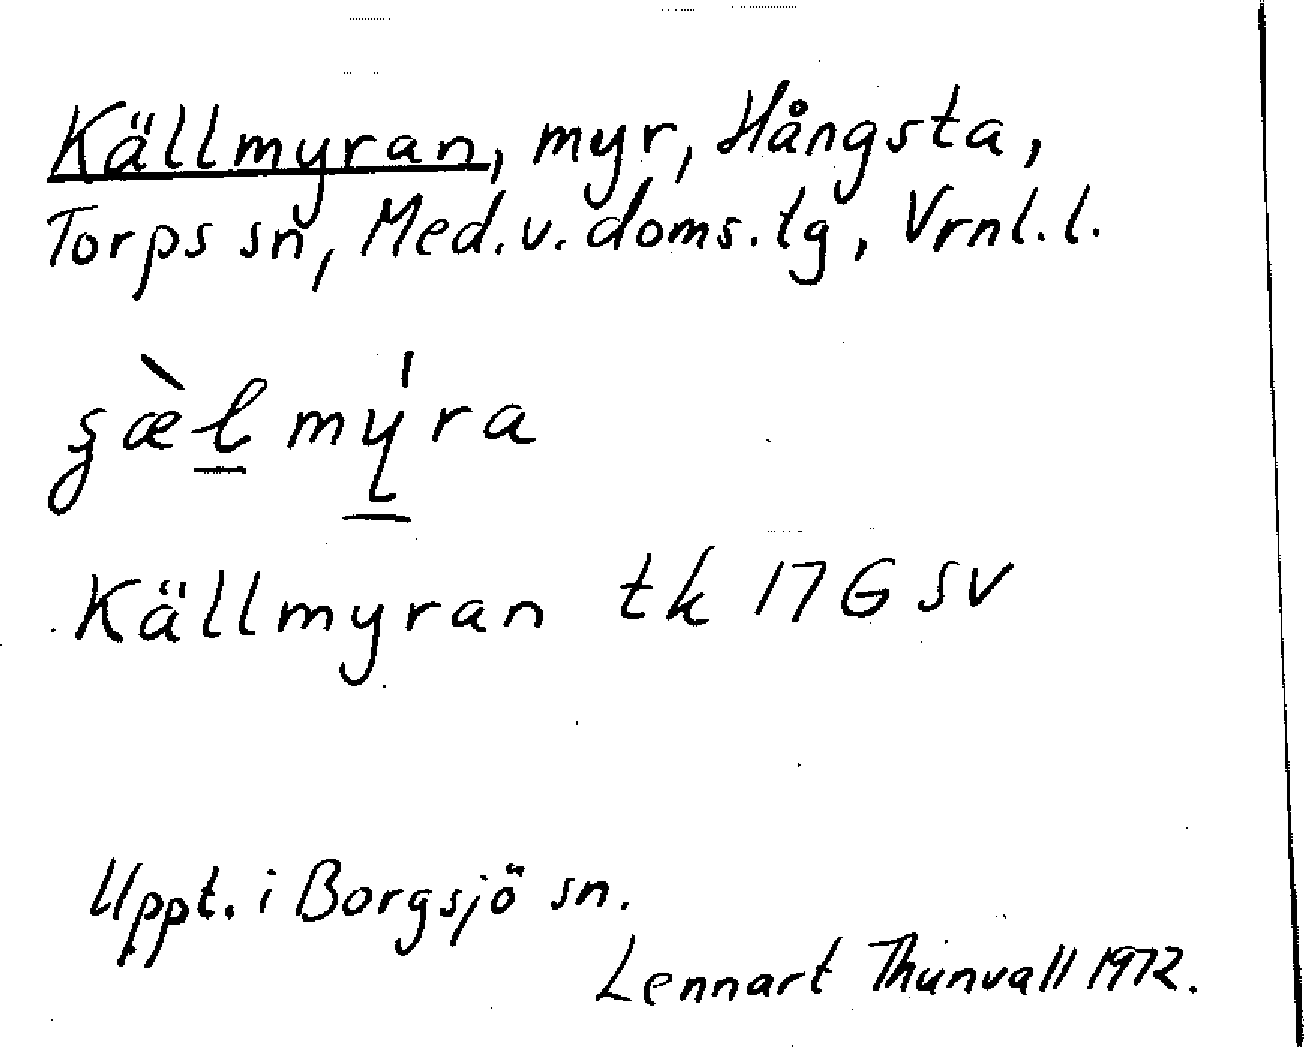 Källmyran, myr, Hångsta,
Torps sn, Med.v.doms.tg, Vrnl.l.
Källmyran tk 17G SV
Uppt. i Borgsjö sn.
Lennart Thunvall 1972.